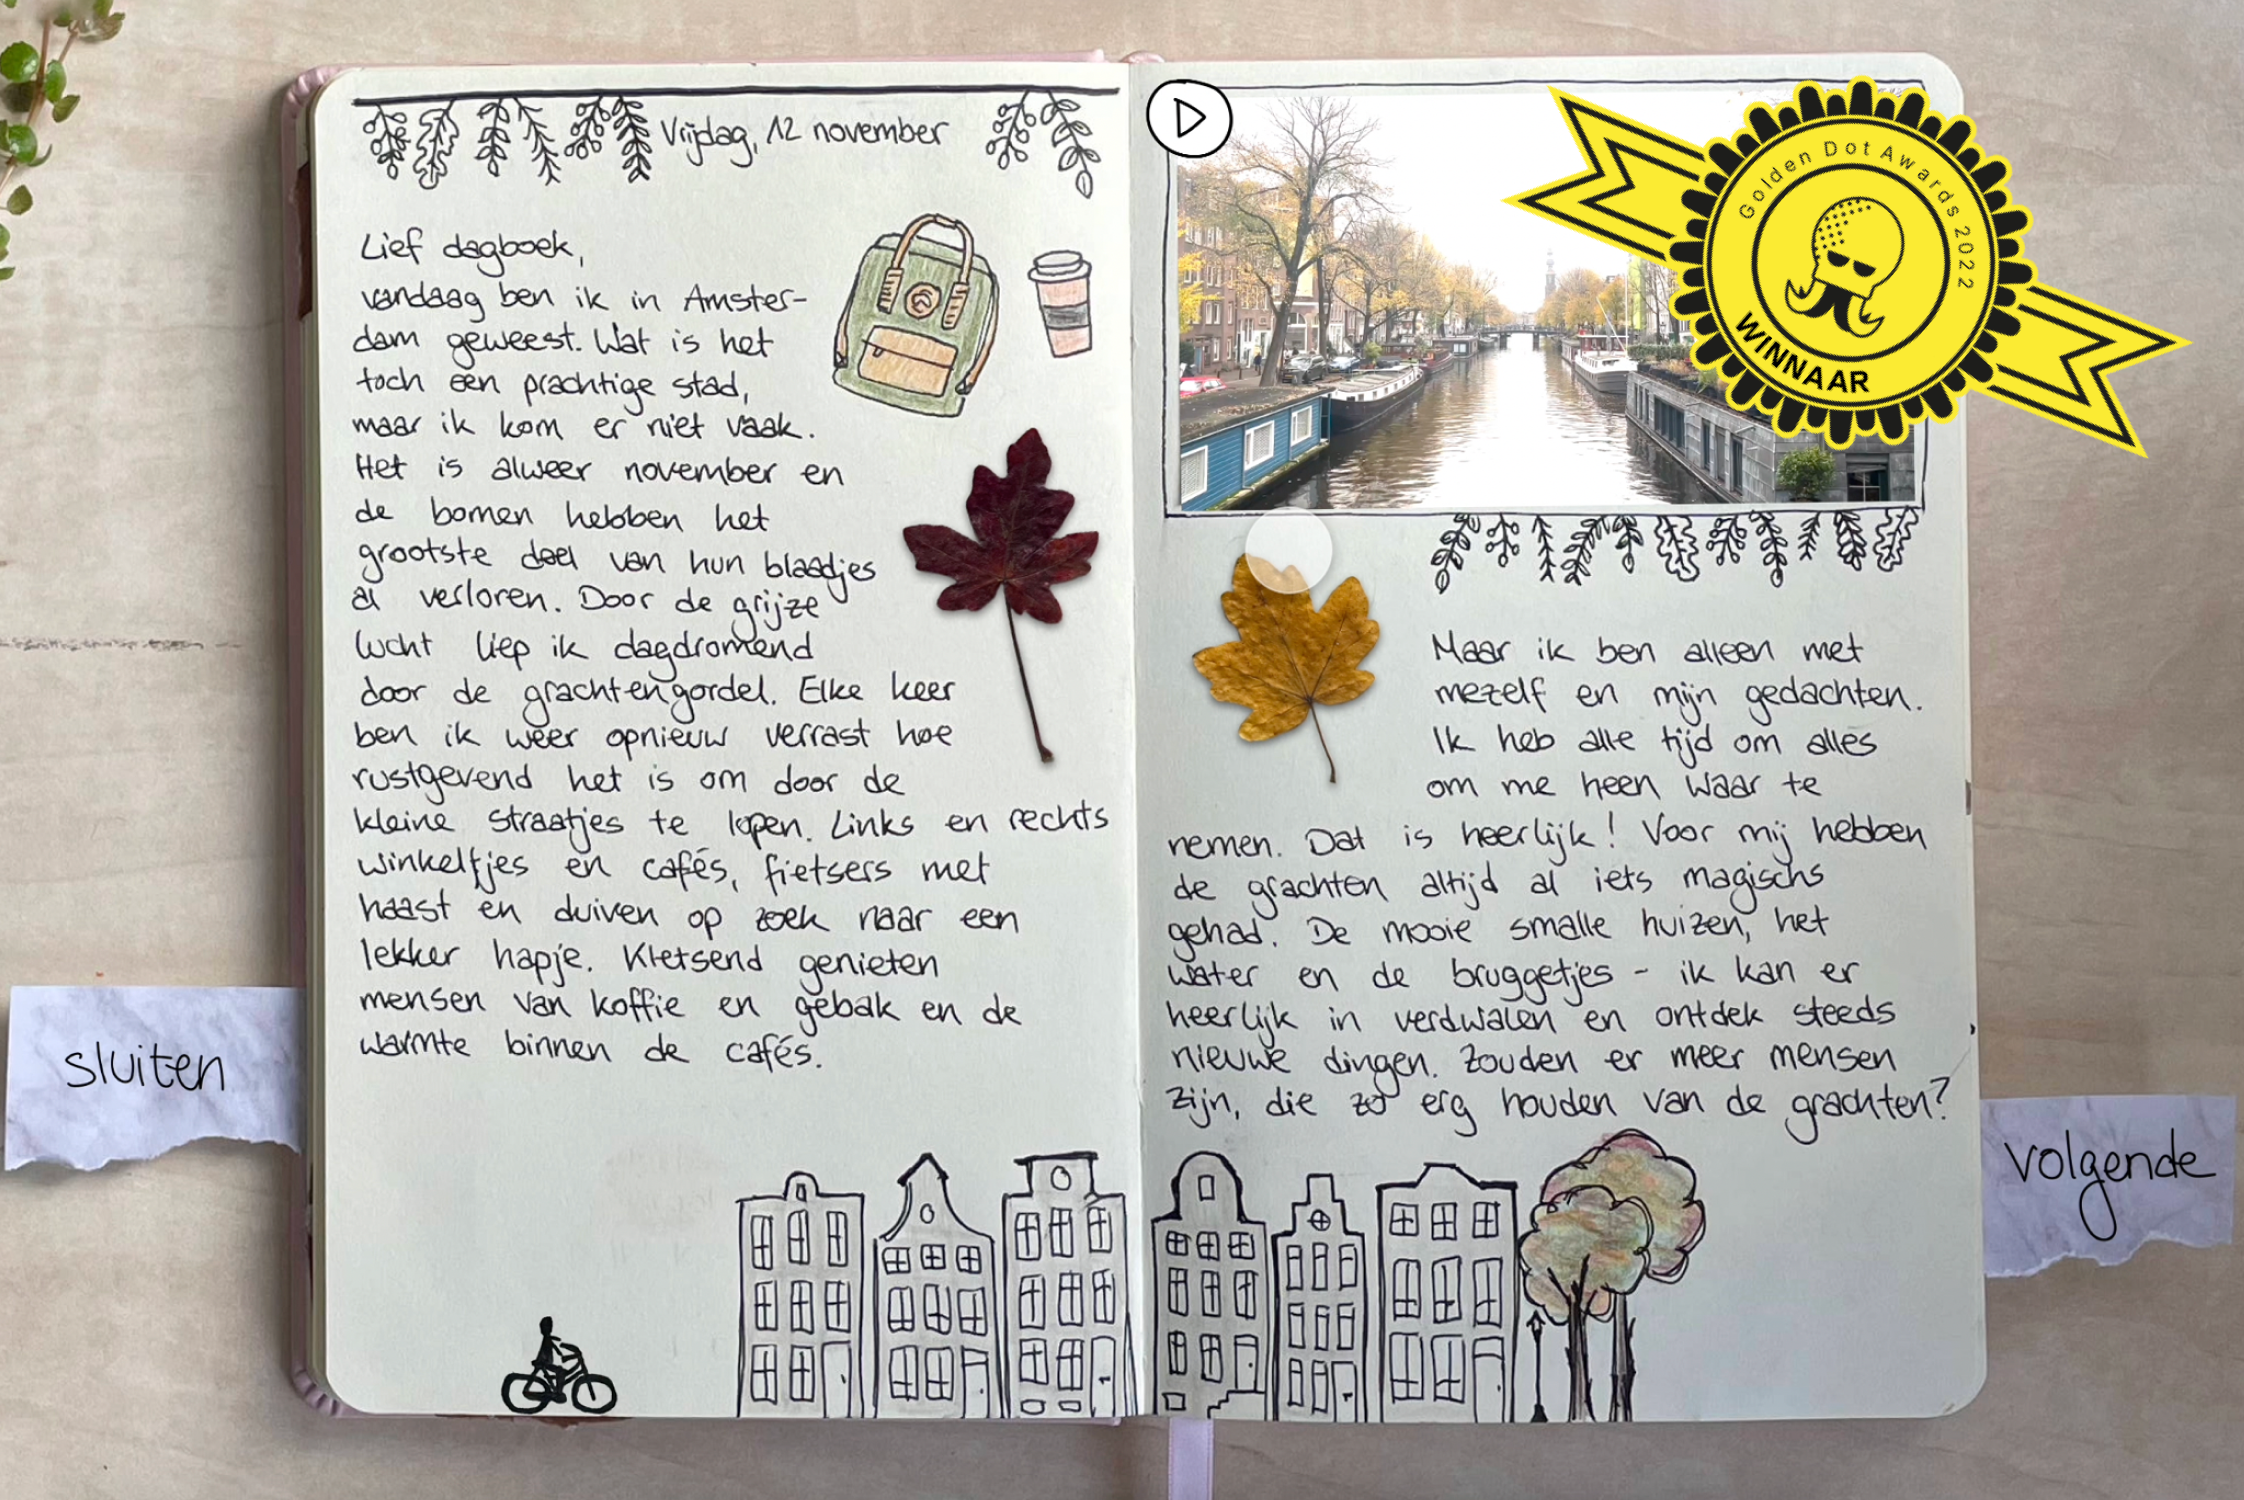 Vrijdag, 12 november
Lief dagboek,
vandaag ben ik in Amster-
dam geweest. Wat is het
toch een prachtige stad,
maar ik kom er niet vaak.
Het is alweer november en
de bomen hebben het
grootste deel van hun blaadjes
al verloren. Door de grijze
lucht liep ik dagdromend
door de grachtengordel. Elke keer
ben ik weer opnieuw verrast hoe
rustgevend het is om door de
kleine straatjes te lopen. Links en rechts
winkeltjes en cafés, fietsers met
haast en duiven op zoek naar een
lekker hapje. Kletsend genieten
mensen van koffie en gebak en de
warmte binnen de cafés.
Golden Dot Awards 2022
WINNAAR
Maar ik ben alleen met
mezelf en mijn gedachten.
Ik heb alle tijd om alles
om me heen waar te
nemen. Dat is heerlijk! Voor mij hebben
de grachten altijd al iets magischs
gehad. De mooie smalle huizen, het
water en de bruggetjes - ik kan er
heerlijk in verdwalen en ontdek steeds
nieuwe dingen. Zouden er meer mensen
zijn, die zo erg houden van de grachten?
sluiten
volgende